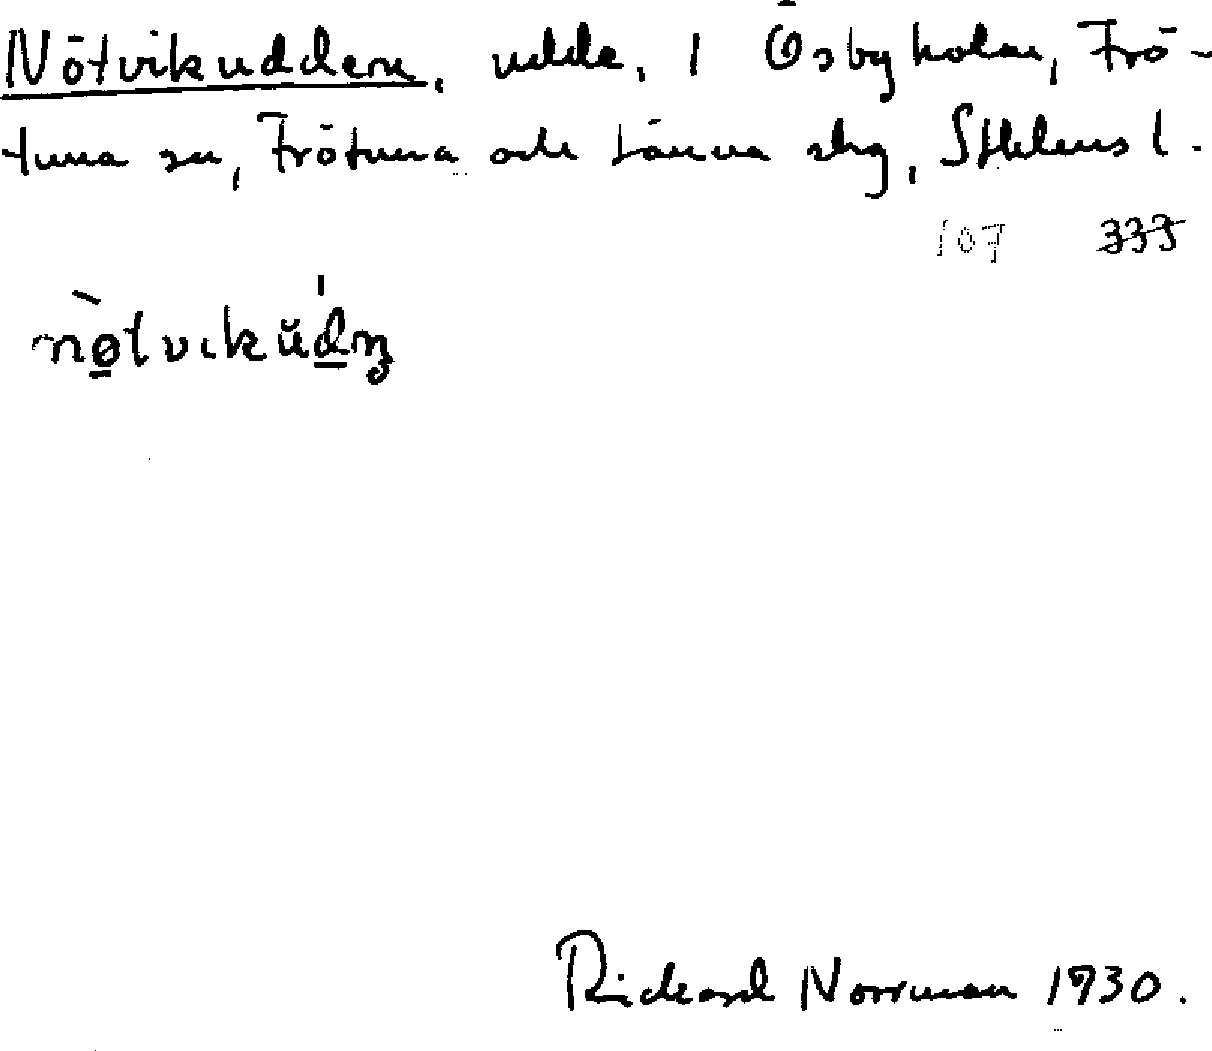 Nötvikudden, udde, 1 Ösbyholm, Frö-
tuna sn, Frötuna och Länna skg, Sthlms l.
107 335
nø̱tvikŭd̲ņ
Rickard Norrman 1930.